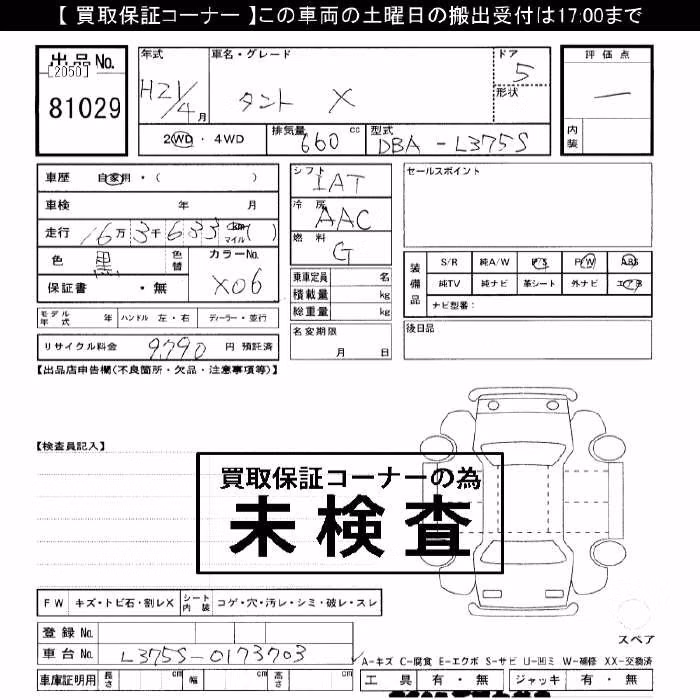 【 買取保証コーナー 】この車両の土曜日の搬出受付は17:00まで
出品 No.
[2050]
81029
年式 車名・グレード ドア 評価点
H21/4月 タント X 5 形状 一
2WD・4WD 排気量 660 cc 型式 DBA-L375S 内装
車歴 自家用・( )
シフト IAT
セールスポイント
車検 年 月
冷房 AAC
走行 16万3千633 km マイル ( )
燃料 G
色 黒 色替 カラーNo. X06
装備品 S/R 純A/W P/S P/W ABS
純TV 純ナビ 革シート 外ナビ エアB
ナビ型番:
保証書 ・無
乗車定員 名
積載量 kg
総重量 kg
モデル年式 年 ハンドル 左・右 ディーラー・並行
名変期限 月 日
後日品
リサイクル料金 9,790 円 預託済
【出品店申告欄(不良箇所・欠品・注意事項等)】
【検査員記入】
買取保証コーナーの為
未検査
FW キズ・トビ石・割レX シート内装 コゲ・穴・汚レ・シミ・破レ・スレ
スペア
登録 No.
車台 No. L375S-0173703
A-キズ C-腐食 E-エクボ S-サビ U-凹ミ W-補修 XX-交換済
車庫証明用 長さ cm 幅 cm 高さ cm
工具 有・無 ジャッキ 有・無